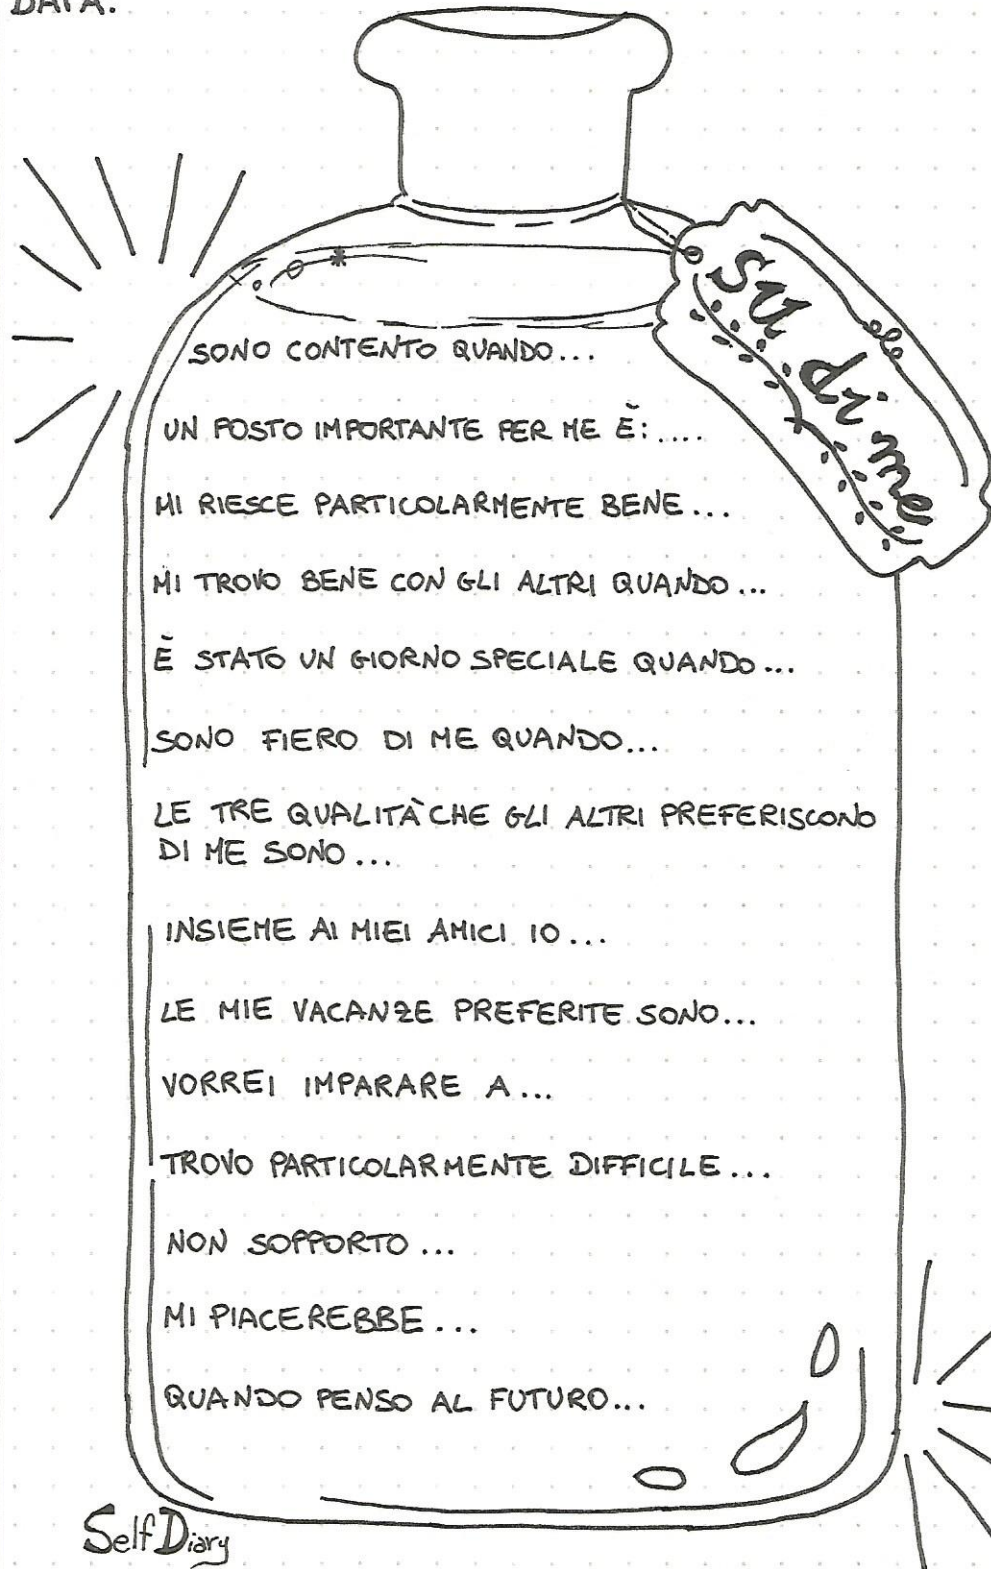 DATA:
su di me
SONO CONTENTO QUANDO...
UN POSTO IMPORTANTE PER ME È:.....
MI RIESCE PARTICOLARMENTE BENE...
MI TROVO BENE CON GLI ALTRI QUANDO...
È STATO UN GIORNO SPECIALE QUANDO...
SONO FIERO DI ME QUANDO...
LE TRE QUALITÀ CHE GLI ALTRI PREFERISCONO
DI ME SONO...
INSIEME AI MIEI AMICI IO...
LE MIE VACANZE PREFERITE SONO...
VORREI IMPARARE A...
TROVO PARTICOLARMENTE DIFFICILE...
NON SOPPORTO...
MI PIACEREBBE...
QUANDO PENSO AL FUTURO...
Self Diary